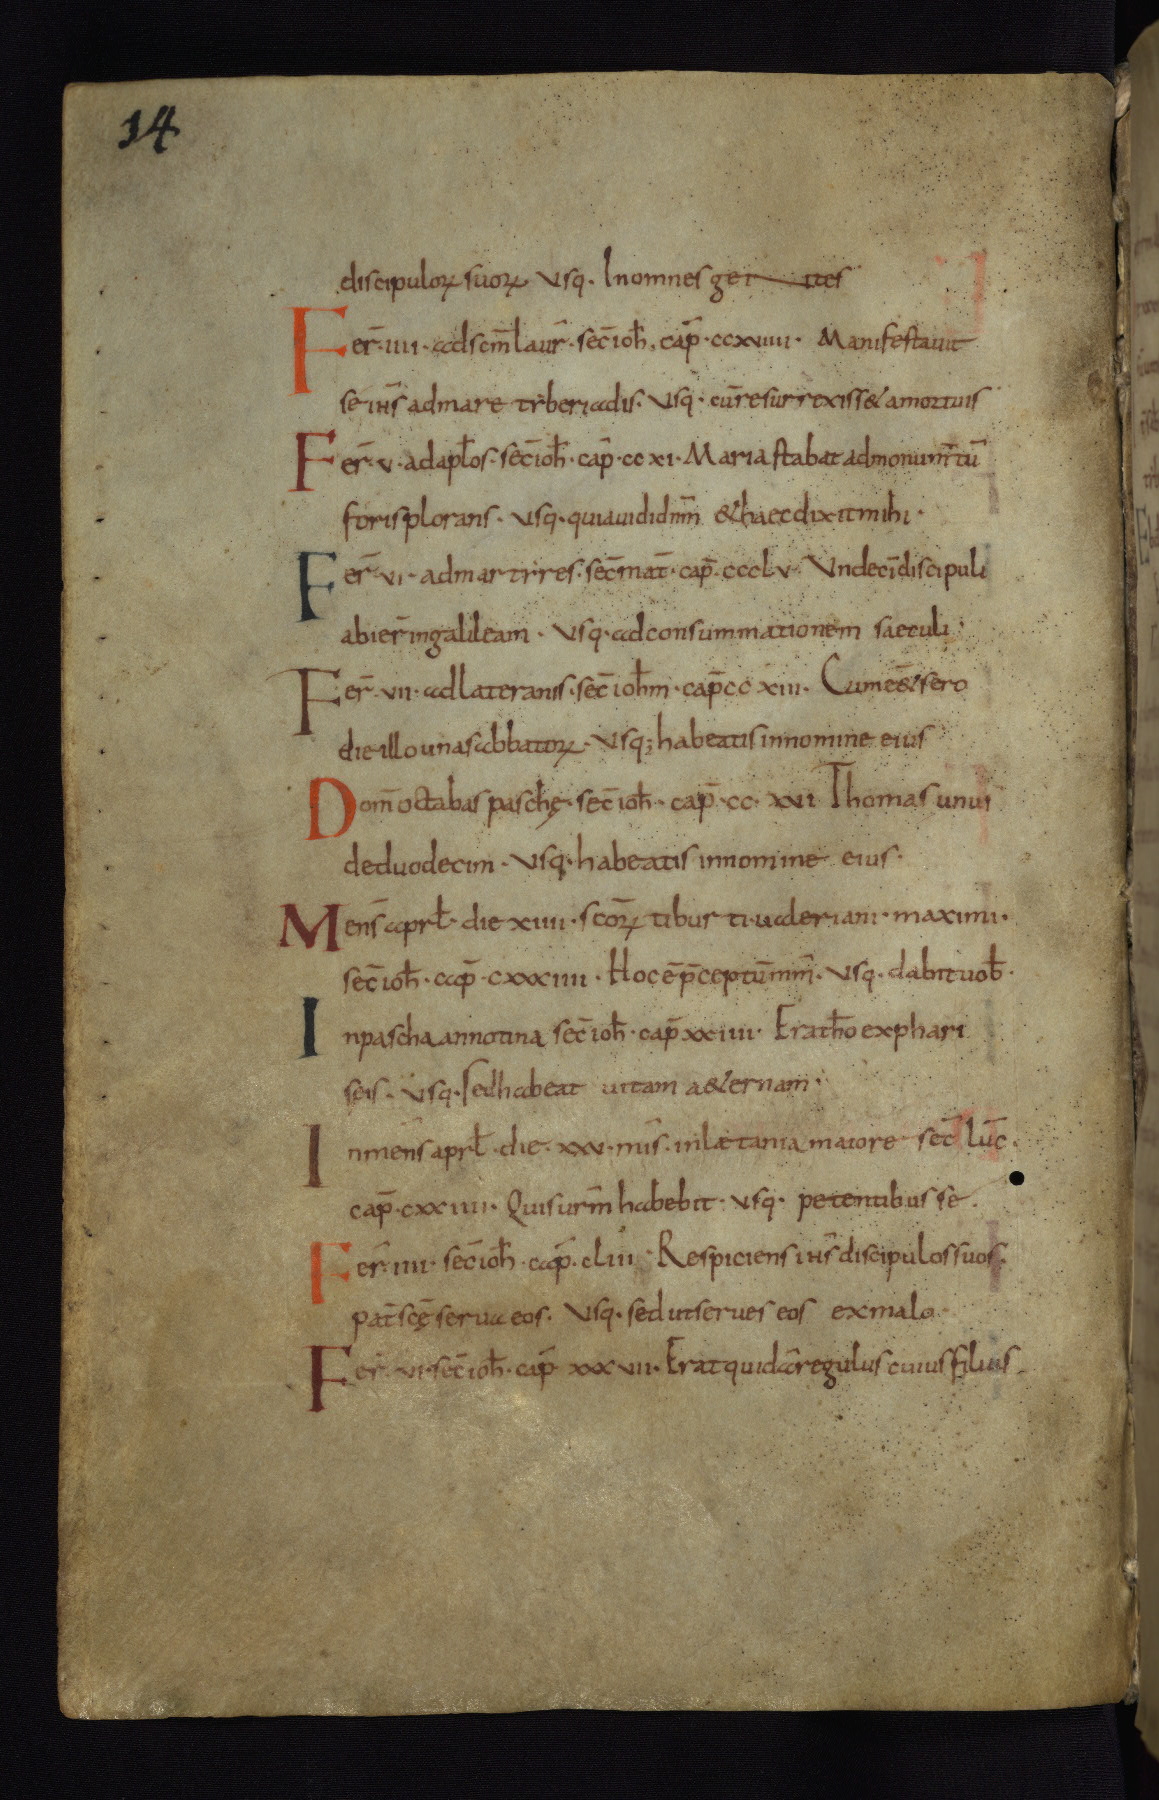 14
discipuloꝝ suoꝝ Vsq. In omnes gentes
Fer̄. iiii. ad scm̄ laur̄. sec̄ ioh̄. cap̄. ccxviiii. Manifestavit
se ihs̄ ad mare tyberiadis. Vsq. cū resurrexiss& a mortuis
Fer̄. v. ad apl̄os. sec̄ ioh̄. cap̄. cc xi. Maria stabat ad monum̄tū
foris plorans. Vsq. quia vidi dn̄m &haec dixit mihi.
Fer̄. vi. ad martyres. sec̄ mat̄. cap̄. ccclv. Undecī discipuli
abier̄ in galileam. Vsq. ad consummationem saeculi.
Fer̄. vii. ad lateranis. sec̄ ioh̄m. cap̄ cc xiii. Cum ēē& sero
die illo una sabbatoꝝ. Vsq; habeatis in nomine eius
Dom̄ octabas paschę. sec̄ ioh̄. cap̄. cc. xvi Thomas unus
de duodecim. Vsq. habeatis in nomine eius.
Mens̄ aprł. die xiiii. scōꝝ tiburti. valeriani. maximi.
sec̄ ioh̄. cap̄. cxxxiiii. Hoc ē p̄ceptū mm̄. Vsq. dabit vob̄.
In pascha annotina sec̄ ioh̄. cap̄ xxiiii. Erat hō ex phari
seis. Vsq. sed habeat vitam a&ernam.
In mens̄ aprł. die. xxv. mis̄. in lætania maiore sec̄ luc̄.
cap̄. cxxiiii. Quis vrm̄ habebit. Vsq. petentibus se.
Fer̄. iiii. sec̄ ioh̄. cap̄. cliii. Respiciens ihs̄ discipulos suos.
pat̄ scē serva eos. Vsq. sed ut serves eos ex malo.
Fer̄. vi. sec̄ ioh̄. cap̄ xxxvii. Erat quidā regulus cuius filius